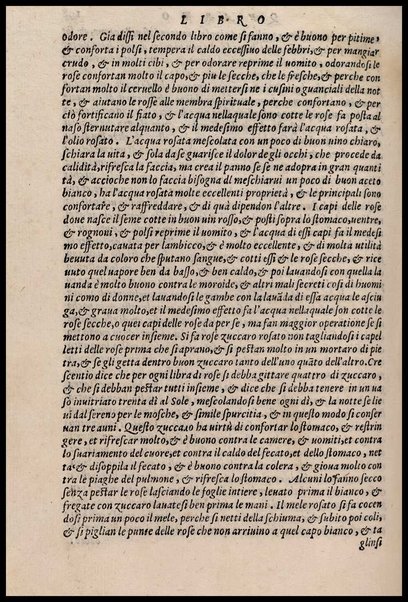 LIBRO
odore. Gia dissi nel secondo libro come si fanno, & è buono per pitime,
& conforta i polsi, tempera il caldo eccessiuo delle febbri, & per mangiar
crudo, & in molti cibi, & per odorare reprime il uomito, odorandosi le
rose confortan molto il capo, & piu le secche, che le fresche, & perche con
fortan molto il ceruello è buono di mettersi ne i cusini o guanciali della not
te, & aiutano le rosse alle membra spirituale, perche confortano, & per
ciò fortificano il fiato, & l'acqua nellaquale sono cotte le rose fa posta al
naso sternutare alquanto, & il medesimo effetto farà l'acqua rosata, &
l'olio rosato. L'acqua rosata mescolata con un poco di buon uino chiaro,
schiara la uita, & sola da se guarisce il dolor degli occhi, che procede da
calidità, rifresca la faccia, ma crea il panno se se ne adopra in gran quanti
tà, & accioche non lo faccia bisogna di mischiarui un poco di buon aceto
bianco, ha l'acqua rosata molte eccellenti proprietà, & le principali sono
confortare, & raffreddare, & di quà dipendon l'altre. I capi delle rose
doue nasce il seme cotte in buon uin rosso, & posti sopra lo stomaco, uentre,
& rognoni, & polsi reprime il uomito, & l'acqua di essi capi fa il medesi
mo effetto, cauata per lambicco, & è molto eccellente, & di molta utilità
beuuta da coloro che sputano sangue, & cotti essi & le rose secche, & rice
uuto quel uapore ben da basso, & ben caldo, & poi lauandosi con quella la
uanda è molto buono contre le moroide, & altri mali secreti cosi di huomi
ni como di donne, et lauandosi le gambe con la lauãda di essa acqua le asciu
ga, & graua molto, et il medesimo effetto fa l'acqua nellaquale son cotte le
rose secche, o quei capi delle rose da per se, ma fan maggior operatione se si
mettono a cuocer insieme. Si fa rose zuccaro rosato non tagliandosi i capel
letti delle rose prima che si aprano, & si pestan molto in un mortaro di pie
tra, & se gli getta dentro buon zuccaro tanto dell'uno quãto dell'altro. Cre
scentio dice che per ogni libra di rose si debba gittare quattro di zuccaro,
& che si debban pestar tutti insieme, & dice che si debba tenere in un ua
so inuitriato trenta dì al Sole, mescolandosi bene ogni dì, & la notte se lie
ui dal sereno per le mosche, & simile spurcitia, & in questo modo si conser
uan tre anni. Questo zuccaro ha uirtù di confortar lo stomaco, & restrin
gere, et rifrescar molto, & è buono contre le camere, & uomiti, et contra
lo suariamento del cuore, et contra il caldo del fecato, et dello stomaco, net
ta & disoppila il fecato, & è buono contra la colera, & gioua molto con
tra le piaghe del pulmone, & rifresca lo stomaco. Alcuni lo fanno secco
senza pestar le rose lasciando le foglie intiere, leuato prima il bianco, &
fregate con zuccaro lauatesi ben prima le mani. Il mele rosato si fa cocen
dosi prima un poco il mele, perche si netti della schiuma, & subito poi coli,
& si piglian le punte delle rose che non arriuin a quel capo bianco, & ta
glinsi